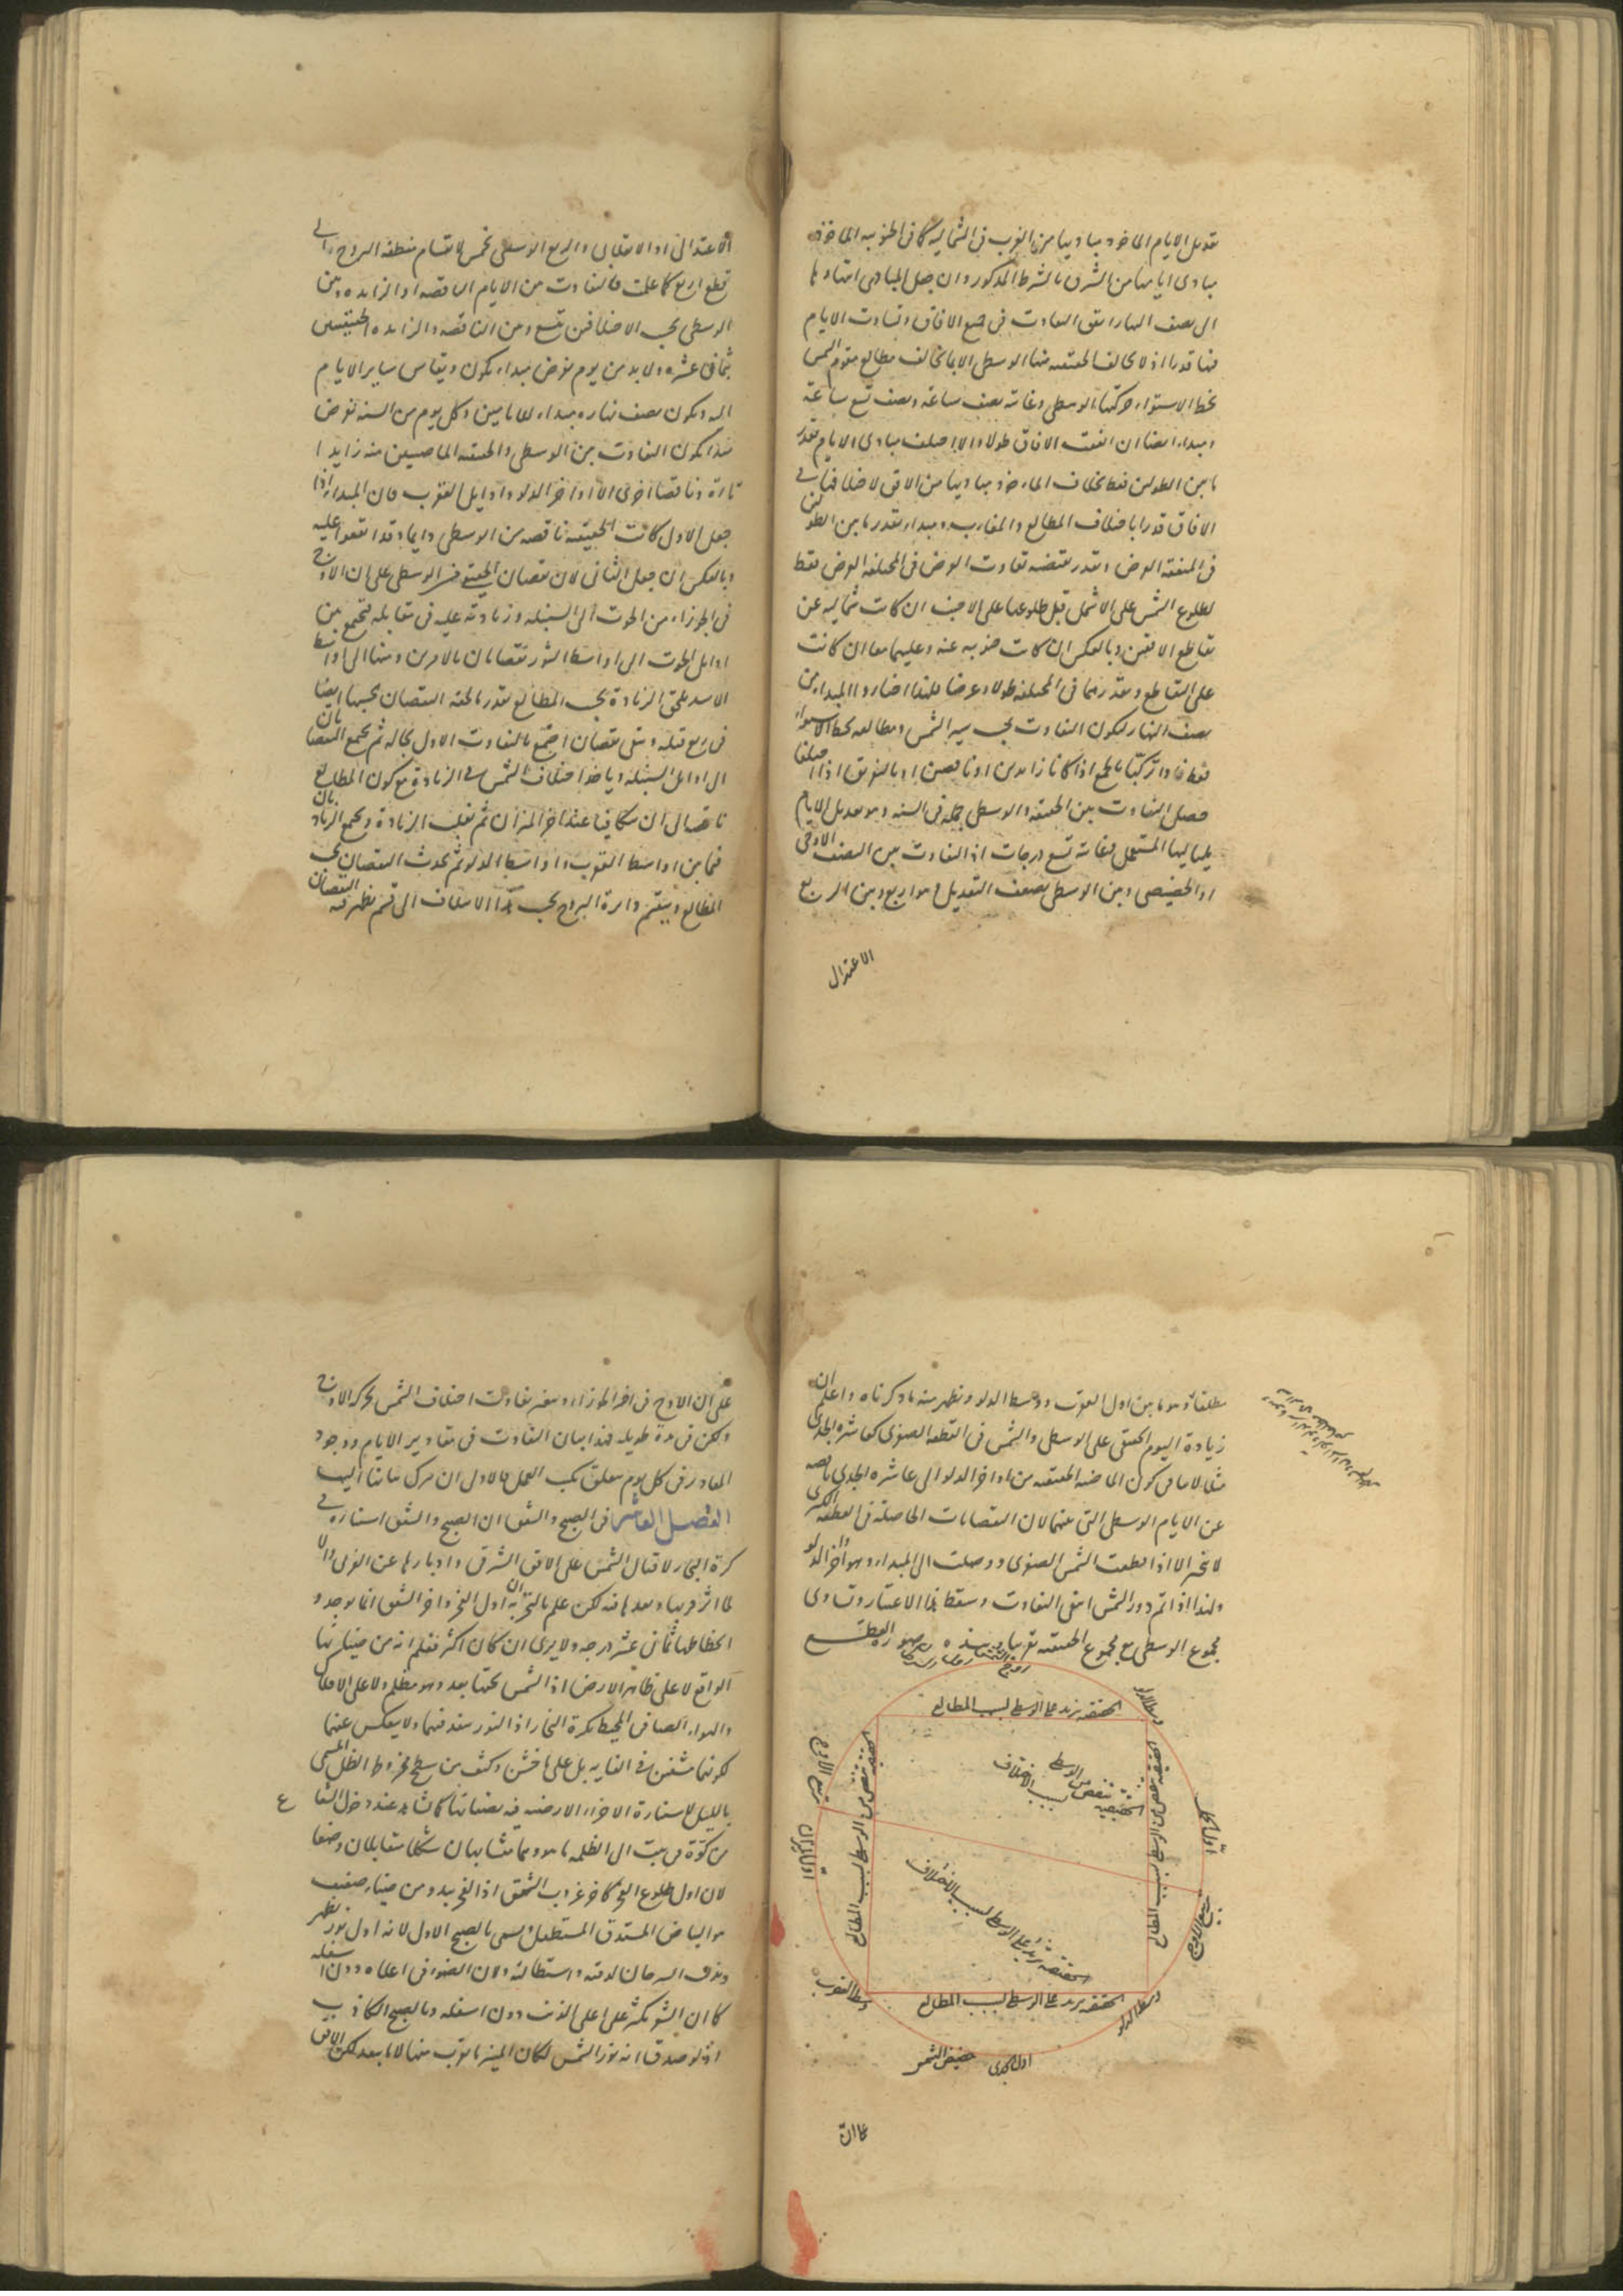 تعديل الايام الماخوذ مباديها من الغرب فى الشمالية كما فى الجنوبية الماخوذة
مبادى ايامها من الشرق بالشرط المذكور وان جعل المبادى انتهاوها
الى نصف النهار اتفق التفاوت فى جميع الافاق وتفاوت الايام
فيها قدرا اذ لا تخالف الحقيقية منها الوسطى الا بما تخالف مطالع مقوم الشمس
بخط الاستواء حركتها الوسطى وغايته نصف ساعة ونصف تسع ساعة
ومبداء ايضا ان اتفقت الافاق طولا والا اختلف مبادى الايام بقدر
ما بين الطولين فقط بخلاف الماخوذ مباديها من الافق لاختلافها فى
الافاق قدرا باختلاف المطالع والمغارب ومبداء بقدر ما بين الطولين
فى المتفقة العرض وبقدر يقتضيه تفاوت العرض فى المختلفة العرض فقط
لطلوع الشمس على الاشمل قبل طلوعها على الاجنب ان كانت شمالية عن
تقاطع الافقين وبالعكس ان كانت جنوبية عنه وعليهما معا ان كانت
على التقاطع وبقدرهما فى المختلفة طولا وعرضا فلهذا اختاروا المبداء من
نصف النهار ليكون التفاوت بحسب سير الشمس ومطالعه بخط الاستواء
فقط فاذا تركبا بالجمع اذا كانا زايدين او ناقصين او بالتفريق اذا اختلفا
حصل التفاوت بين الحقيقية والوسطى جملة فى السنة وهو تعديل الايام
بلياليها المستعمل فغايته تسع درجات اذ التفاوت بين النصف الاوجى
او الحضيضى وبين الوسطى بضعف التعديل وهو اربع وبين الربع
الاعتدال
الاعتدالى او الانقلابى والربع الوسطى بخمس لانقسام منطقة البروج الى
قطع اربع كما علمت فالتفاوت بين الايام الناقصة او الزايدة وبين
الوسطى بحسب الاختلافين بتسع وبين الناقصة والزايدة الحقيقيتين
بثمانى عشرة ولا بد من يوم نفرض مبداء يكون ويقاس ساير الايام
اليه ويكون نصف نهاره مبداء للامامين وكل يوم من السنة نفرض
مبدا يكون التفاوت بين الوسطى والحقيقية الماضيين منه زايدا
تارة وناقصا اخرى الا اواخر الدلو واوايل العقرب فان المبداء اذا
جعل الاول كانت الحقيقية ناقصة من الوسطى دايما وقد اتفقوا عليه
وبالعكس ان جعل الثانى لان نقصان الحقيقى من الوسطى على ان الاوج
فى الجوزاء من الحوت الى السنبلة وزيادته عليه فى مقابله فيجتمع من
اوايل الحوت الى اواسط الثور نقصانان بالامرين ومنها الى اواسط
الاسد يلحق الزيادة بحسب المطالع بقدر ما لحقه النقصان بحسبها ايضا
فى ربع قبله ويبقى نقصان اجتمع بالتفاوت الاول بحاله ثم يجتمع النقصانان
الى اوايل السنبلة وياخذ اختلاف الشمس فى الزيادة مع كون المطالع
ناقصا الى ان يتكافيا عند اخر الميزان ثم تغلب الزيادة ويجتمع الزيادتان
فيما بين اواسط العقرب واواسط الدلو ثم يحدث النقصان بحسب
المطالع وينقسم دائرة البروج بحسب هذا الاختلاف الى قسم يظهر فيه النقصان
مطلقا وهو ما بين اول العقرب ووسط الدلو ويظهر منه ما ذكرناه واعلم ان
زيادة اليوم الحقيقى على الوسطى والشمس فى القطعة الصغرى كعاشرة الجدى
مثلا لا ينافى كون الماضية الحقيقية من اواخر الدلو الى عاشرة الجدى ناقصة
عن الايام الوسطى التى بينهما لان النقصانات الحاصلة فى القطعة الكبرى
لا تنجبر الا اذا قطعت الشمس الصغرى ووصلت الى المبداء وهو اخر الدلو
ولهذا اذا تم دور الشمس انتفى التفاوت وسقط هذا الاعتبار وتساوى
مجموع الوسطى مع مجموع الحقيقية تقريبا وهذه صورة القطع
الحقيقية يزيد على الوسطى بسبب المطالع
الحقيقية تنقص من الوسطى بسبب الاختلاف
الحقيقية تنقص من الوسطى بسبب المطالع
الحقيقية تنقص من الوسطى بسبب المطالع
الحقيقية يزيد على الوسطى بسبب الاختلاف
الحقيقية يزيد على الوسطى بسبب المطالع
ربع الاوج
اول الميزان
اول الحمل
ربع الاوج
وسط العقرب
وسط الدلو
اول الجدى
حضيض الشمس
على ان
على ان الاوج فى اخر الجوزاء ويتغير تفاوت اختلاف الشمس بحركة الاوج
ولكن فى مدة طويلة فهذا بيان التفاوت فى مقادير الايام ووجود
المقادير فى كل يوم متعلق بكتب العمل فالاولى ان نترك بياننا اليها
الفصل العاشر فى الصبح والشفق ان الصبح والشفق استنارة فى
كرة البخار لاقبال الشمس على الافق الشرقى وادبارها عن الغربى والا
لما اثر قربها وبعدها فيه لكن علم بالتجربة ان اول الفجر واخر الشفق انما يوجد و
انحطاطها ثمانى عشر درجة ولا يرى ان كان اكثر فعلم انه من ضيائها
الواقع لا على ظاهر الارض اذ الشمس تحتها بعد وهو مظلم ولا على الافلاك
والهواء الصافى المحيط بكرة البخار اذ النور ينفذ فيهما ولا ينعكس عنهما
لكونهما مشفين فى الغاية بل على ما خشن وكثف من سطح مخروط الظل المسمى
بالليل لاستنارة الاجزاء الارضية فيه بضيائها كما تشاهد عند دخول الشعاع
من كوة فى بيت الى الظلمة ما هو وهما متشابهان شكلا متقابلان وضعا
لان اول طلوع الفجر كاخر غروب الشفق اذ الفجر يبدو من ضياء ضعيف
هو البياض المستدق المستطيل ويسمى بالصبح الاول لانه اول نور يظهر
وبذنب السرحان لدقته واستطالته ولان الضوء فى اعلاه دون اسفله
كما ان الشعر يكثر على اعلى الذنب دون اسفله وبالصبح الكاذب
اذ لو صدق انه نور الشمس لكان المنير ما يقرب منها لا ما يبعد لكن الافق